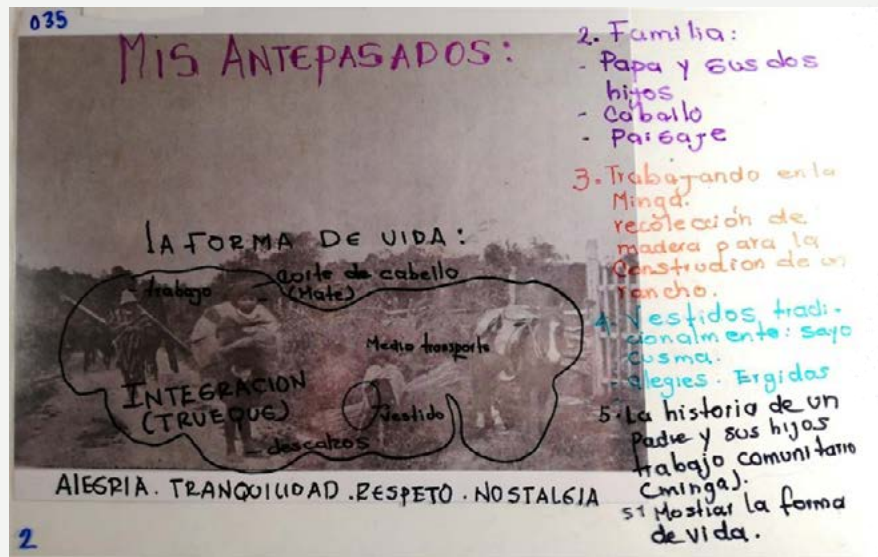 035
MIS ANTEPASADOS:
LA FORMA DE VIDA:
- trabajo
corte de cabello
(Mate)
Medio transporte
INTEGRACION
(TRUEQUE)
Vestido
descalzos
ALEGRIA. TRANQUILIDAD. RESPETO. NOSTALGIA
2
2. Familia:
- Papa y sus dos
hijos
- Caballo
- Paisaje
3. Trabajando en la
Minga.
recolección de
madera para la
Construcion de un
rancho.
4. Vestidos tradi-
cionalmente: sayo
cusma.
- alegres. Ergidos
5. La historia de un
Padre y sus hijos
trabajo comunitario
(minga).
5! Mostrar la forma
de vida.